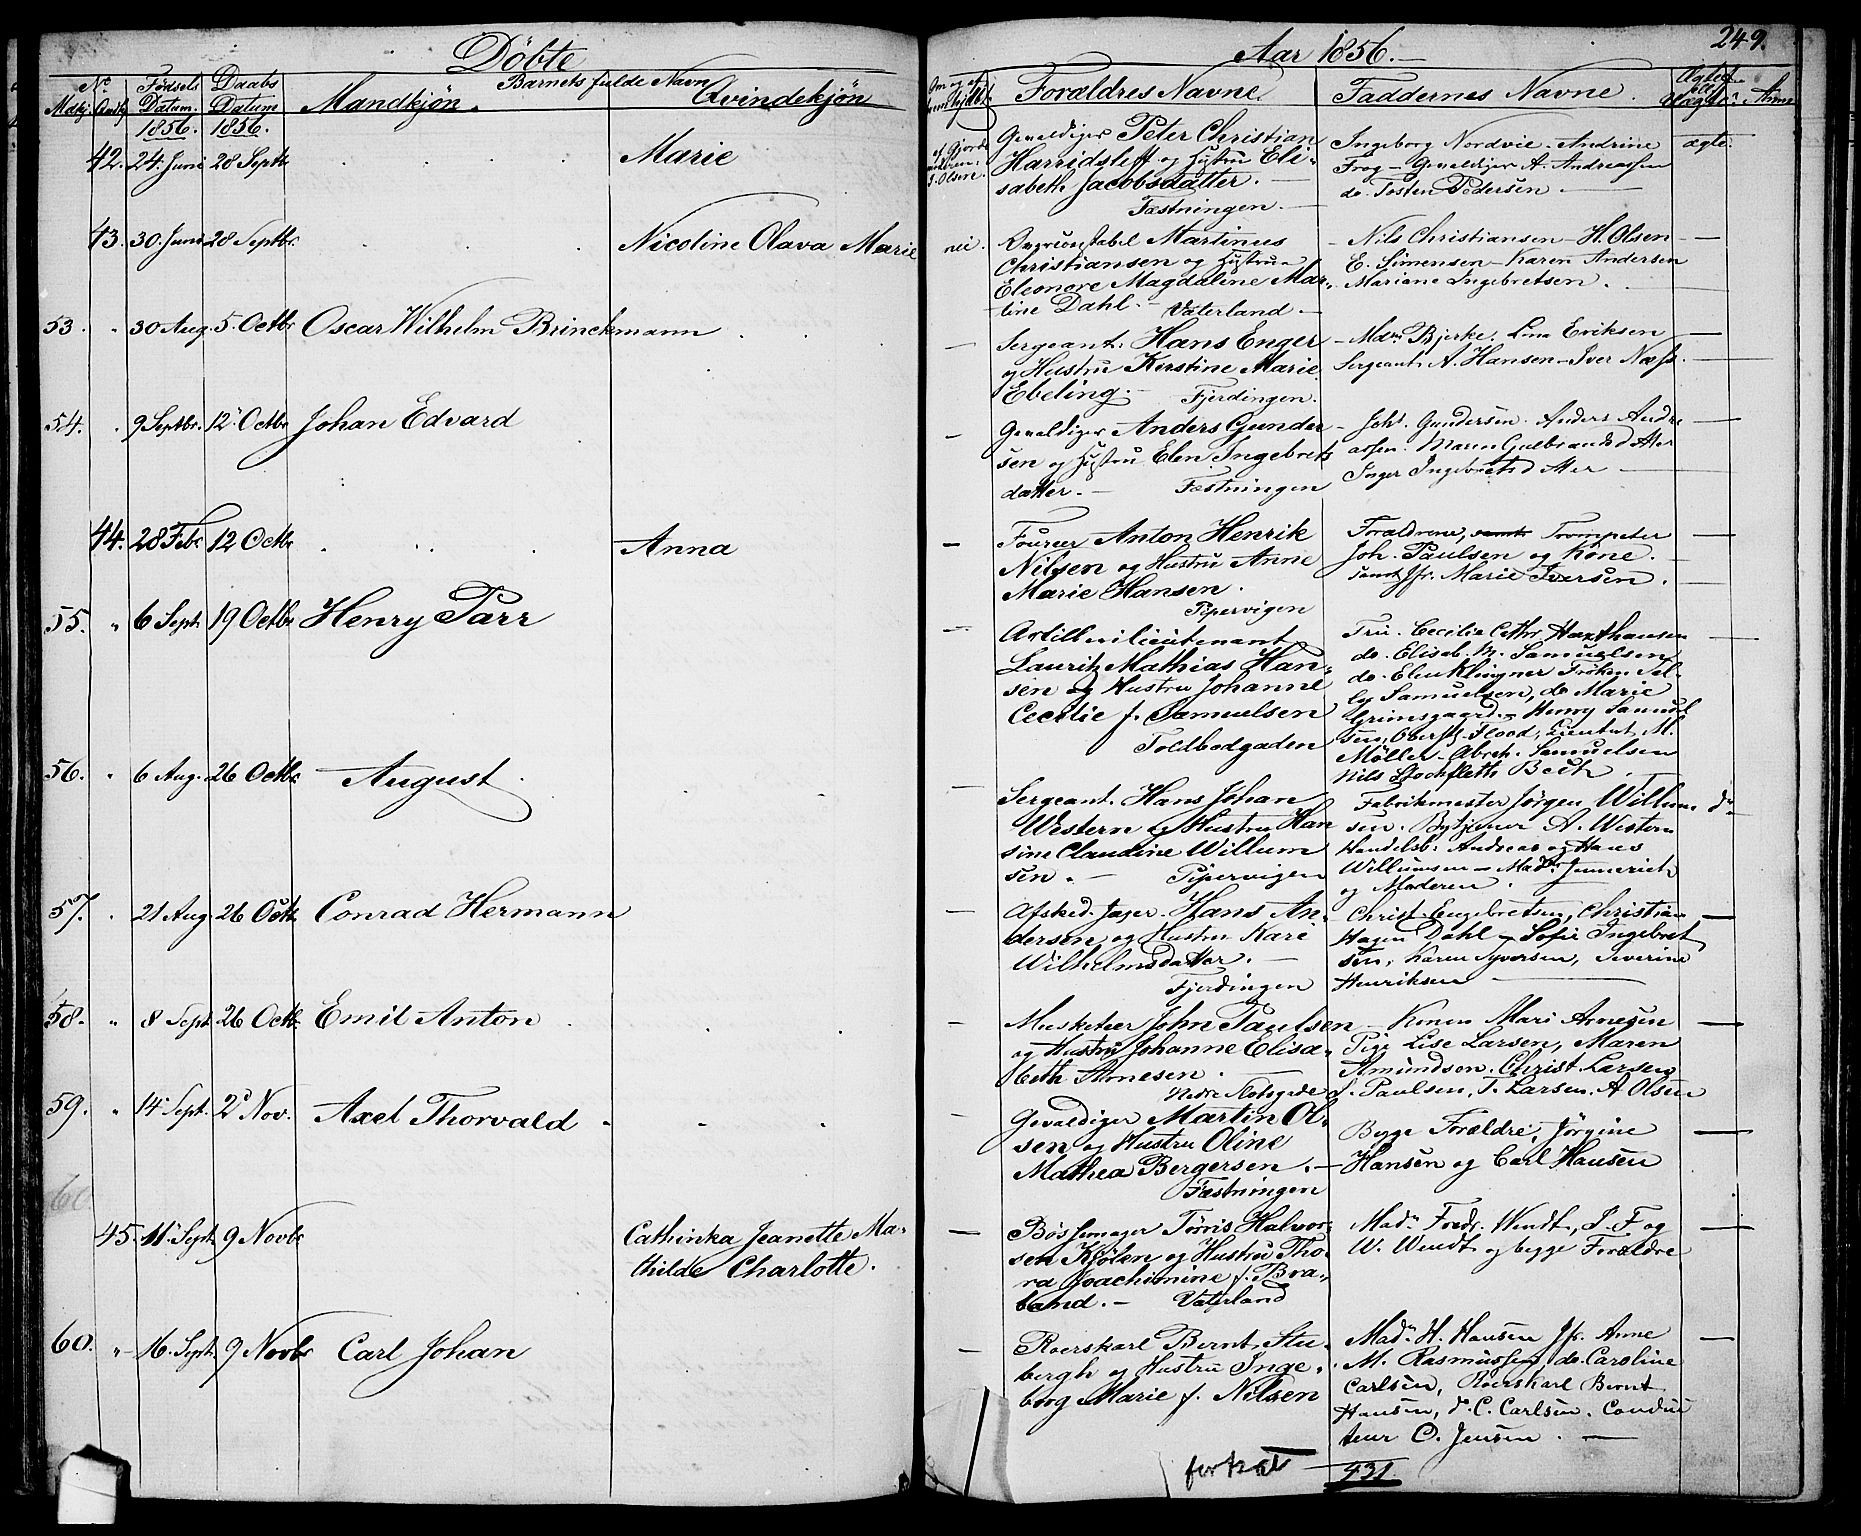 Döbte
Aar 1856.—
249.
No
Mdkj. Qvdkj
Födsels Datum.
Daabs Datum
Barnets fulde Navn
Mandkjön.
Qvindekjön
Forældres Navne.
Faddernes Navne.
Ægte
Uægte
Anm
1856. 1856.
42. 24. Juni 28 Septbr
Marie
af Gjord-
moderen
S. Olsen.
Gevaldiger Peter Christian
Harridsleff og Hustru Eli-
sabeth Jacobsdatter. —
Fæstningen. —
Ingeborg Nordvie. Andrine
Frog — Gevaldiger A. Andreassen
do. Tosten Pedersen —
ægte.
43. 30. Juni 28 Septbr.
Nicoline Olava Marie
nei.
Martinus
Christiansen og Hustru
Eleonore Magdalene Mar-
tine Dahl. — Vaterland —
Nils Christiansen — H. Olsen
E. Simensen — Karen Andersen
Mariane Ingebretsen.
53. " 30 Aug. 5. Octbr Oscar Wilhelm Brinckmann
Sergeant. Hans Enger
og Hustru Kirstine Marie
Ebeling. — Fjerdingen.
Mdm Bjerke. Lina Eriksen
Sergeant A. Hansen — Iver Næss.
54. " 9 Septbr. 12 Octbr Johan Edvard
Gevaldiger Anders Gunder-
sen og Hustru Elen Ingebrets
datter. — Fæstningen
Johs. Gundersen. Anders Andre
assen. Maren Gulbrandsdatter
Inger Ingebretsdatter —
44. 28 Feb. 12 Octbr
Anna
Fourer Anton Henrik
Nilsen og Hustru Anne
Marie Hansen.
Pipervigen
Forældrene, samt Trompeter
Joh. Paulsen og Kone.
samt Jfr. Marie Iversen.
55. " 6 Sept. 19 Octbr Henry Parr
Artillerilieutenant
Lauritz Mathias Han-
sen og Hustru Johanne
Cecilie f. Samuelsen
Toldbodgaden
Fru. Cecilie Cathr. Haxthausen
do. Elisab. M. Samuelsen
do. Elen Klingner Fröken Sel-
ly Samuelsen, do Marie
Grimsgaard. Henry Samuel
sen, Oberst Flood, Lieutnt. M.
Möller — Abrah. Samuelsen
Nils Stockfleth Beck
56. " 6 Aug. 26 Octbr August.
Sergeant. Hans Johan
Western og Hustru Han
sine Claudine Willum
sen. — Pipervigen
Fabrikmester Jörgen Willum
sen. Bytjener A. Western
Handelsb. Andreas og Hans
Willumsen — Madm Jennerich
og Moderen.
do
57. " 21 Aug. 26 Octbr Conrad Hermann
Afsked. Jæger. Hans An-
dersen og Hustru Kari
Wilhelmsdatter. —
Fjerdingen
Christ. Engebretsen, Christian
Hagen Dahl — Sofie Ingebret
sen, Karen Syversen, Severine
Henriksen
58. " 8 Sept. 26 Octbr. Emil Anton
Musketeer John Paulsen
og Hustru Johanne Elisa-
beth Arnesen. —
Nedre Slotsgade
Konen Mari Arnesen
Pige Lise Larsen, Maren
Amundsen. Christ. Larsen
S. Paulsen, T. Larsen. A Olsen
59. " 14 Sept. 2 Nov. Axel Thorvald
Gevaldiger Martin Ol-
sen og Hustru Oline
Mathea Bergersen. —
Fæstningen
Begge Forældre, Jörgine
Hansen og Carl Hansen
60
45. 11 Sept. 9 Novbr
Cathinka Jeanette Ma-
thilde Charlotte.
Bössemager Törris Halvor-
sen Kjölen og Hustru Tho-
ra Joachimine f. Bra-
band. — Vaterland
Madm Fredr. Wendt, S. F og
W. Wendt og begge Forældre
60. " 16. Sept. 9 Novbr Carl Johan
Roerskarl Bernt Stu-
bergh og Hustru Inge-
borg Marie f. Nilsen
Madm H. Hansen Jfr. Anne
M. Rasmussen, do. Caroline
Carlsen, Roerskarl Bernt
Hansen, do. C. Carlsen. Conduc
teur O. Jensen. —
431